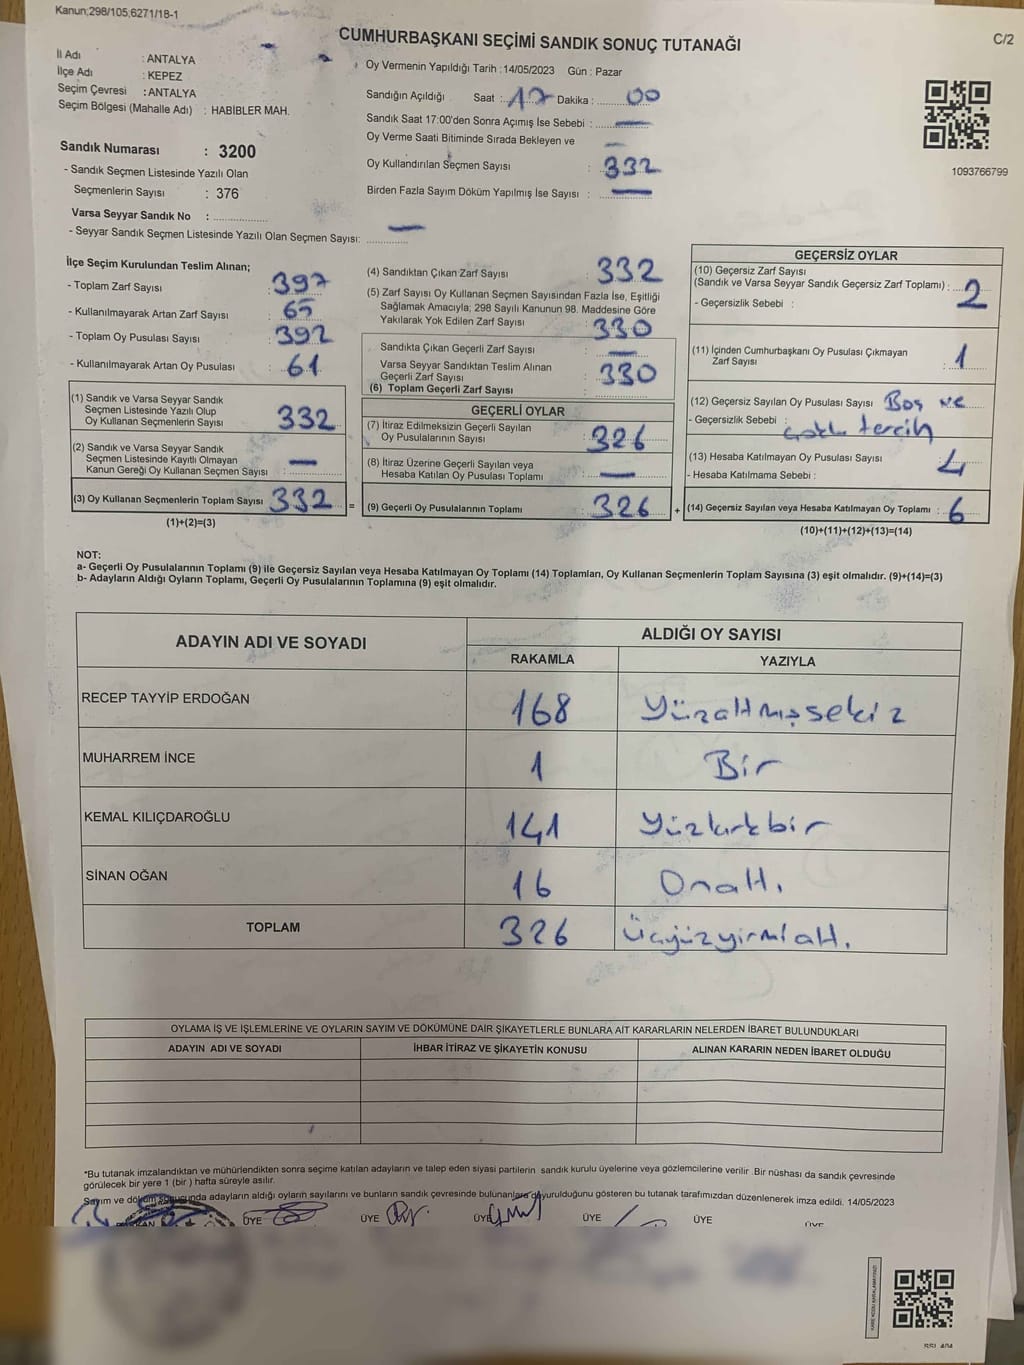 Kanun;298/105;6271/18-1
CUMHURBAŞKANI SEÇİMİ SANDIK SONUÇ TUTANAĞI
C/2
İl Adı : ANTALYA
İlçe Adı : KEPEZ
Seçim Çevresi : ANTALYA
Seçim Bölgesi (Mahalle Adı) : HABİBLER MAH.
Sandık Numarası : 3200
- Sandık Seçmen Listesinde Yazılı Olan
Seçmenlerin Sayısı : 376
Varsa Seyyar Sandık No : ..............
- Seyyar Sandık Seçmen Listesinde Yazılı Olan Seçmen Sayısı: —
Oy Vermenin Yapıldığı Tarih :14/05/2023 Gün : Pazar
Sandığın Açıldığı Saat : 17 Dakika : 00
Sandık Saat 17:00'den Sonra Açımış İse Sebebi : —
Oy Verme Saati Bitiminde Sırada Bekleyen ve —
Oy Kullandırılan Seçmen Sayısı : 332
Birden Fazla Sayım Döküm Yapılmış İse Sayısı : —
1093766799
İlçe Seçim Kurulundan Teslim Alınan;
- Toplam Zarf Sayısı : 397
- Kullanılmayarak Artan Zarf Sayısı : 65
- Toplam Oy Pusulası Sayısı : 392
- Kullanılmayarak Artan Oy Pusulası : 61
(1) Sandık ve Varsa Seyyar Sandık
Seçmen Listesinde Yazılı Olup
Oy Kullanan Seçmenlerin Sayısı : 332
(2) Sandık ve Varsa Seyyar Sandık
Seçmen Listesinde Kayıtlı Olmayan
Kanun Gereği Oy Kullanan Seçmen Sayısı : —
(3) Oy Kullanan Seçmenlerin Toplam Sayısı 332 =
(1)+(2)=(3)
(4) Sandıktan Çıkan Zarf Sayısı : 332
(5) Zarf Sayısı Oy Kullanan Seçmen Sayısından Fazla İse, Eşitliği
Sağlamak Amacıyla; 298 Sayılı Kanunun 98. Maddesine Göre
Yakılarak Yok Edilen Zarf Sayısı : 330
Sandıkta Çıkan Geçerli Zarf Sayısı : —
Varsa Seyyar Sandıktan Teslim Alınan
Geçerli Zarf Sayısı : 330
(6) Toplam Geçerli Zarf Sayısı
GEÇERLİ OYLAR
(7) İtiraz Edilmeksizin Geçerli Sayılan
Oy Pusulalarının Sayısı : 326
(8) İtiraz Üzerine Geçerli Sayılan veya
Hesaba Katılan Oy Pusulası Toplamı : —
(9) Geçerli Oy Pusulalarının Toplamı : 326 +
GEÇERSİZ OYLAR
(10) Geçersiz Zarf Sayısı
(Sandık ve Varsa Seyyar Sandık Geçersiz Zarf Toplamı) : 2
- Geçersizlik Sebebi :
(11) İçinden Cumhurbaşkanı Oy Pusulası Çıkmayan
Zarf Sayısı : 1
(12) Geçersiz Sayılan Oy Pusulası Sayısı Boş ve
- Geçersizlik Sebebi : çoklu tercih
(13) Hesaba Katılmayan Oy Pusulası Sayısı 4
- Hesaba Katılmama Sebebi :
(14) Geçersiz Sayılan veya Hesaba Katılmayan Oy Toplamı : 6
(10)+(11)+(12)+(13)=(14)
NOT:
a- Geçerli Oy Pusulalarının Toplamı (9) ile Geçersiz Sayılan veya Hesaba Katılmayan Oy Toplamı (14) Toplamları, Oy Kullanan Seçmenlerin Toplam Sayısına (3) eşit olmalıdır. (9)+(14)=(3)
b- Adayların Aldığı Oyların Toplamı, Geçerli Oy Pusulalarının Toplamına (9) eşit olmalıdır.
ADAYIN ADI VE SOYADI
ALDIĞI OY SAYISI
RAKAMLA YAZIYLA
RECEP TAYYİP ERDOĞAN 168 Yüzaltmışsekiz
MUHARREM İNCE 1 Bir
KEMAL KILIÇDAROĞLU 141 Yüzkırkbir
SİNAN OĞAN 16 Onaltı
TOPLAM 326 üçyüzyirmialtı
OYLAMA İŞ VE İŞLEMLERİNE VE OYLARIN SAYIM VE DÖKÜMÜNE DAİR ŞİKAYETLERLE BUNLARA AİT KARARLARIN NELERDEN İBARET BULUNDUKLARI
ADAYIN ADI VE SOYADI İHBAR İTİRAZ VE ŞİKAYETİN KONUSU ALINAN KARARIN NEDEN İBARET OLDUĞU
*Bu tutanak imzalandıktan ve mühürlendikten sonra seçime katılan adayların ve talep eden siyasi partilerin sandık kurulu üyelerine veya gözlemcilerine verilir .Bir nüshası da sandık çevresinde
görülecek bir yere 1 (bir ) hafta süreyle asılır.
Sayım ve döküm sonucunda adayların aldığı oyların sayılarını ve bunların sandık çevresinde bulunanlara duyurulduğunu gösteren bu tutanak tarafımızdan düzenlenerek imza edildi. 14/05/2023
ÜYE ÜYE ÜYE ÜYE ÜYE ÜYE